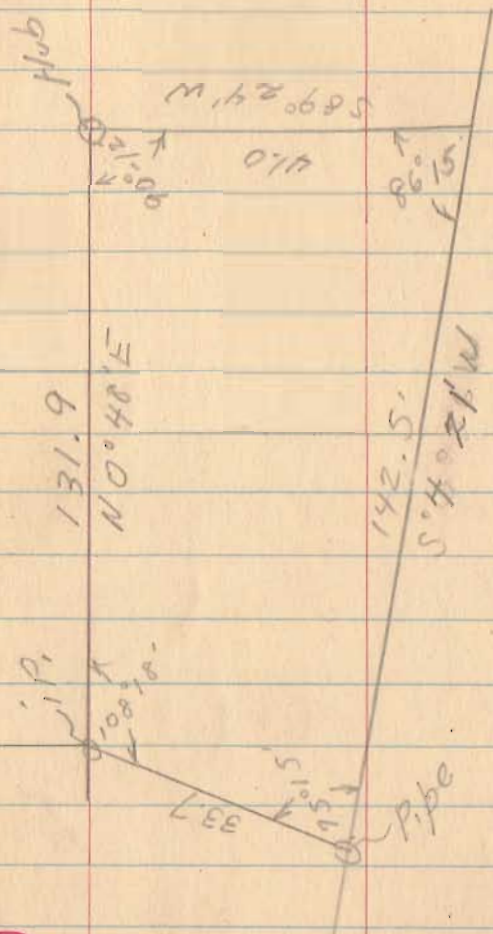 Hub
90°-12'
S 89° 24' W
41.0
86° 15'
131.9
N 0° 48' E
142.5
S 4° 21' W
i.P.
108° 18'
33.7
75° 15'
Pipe